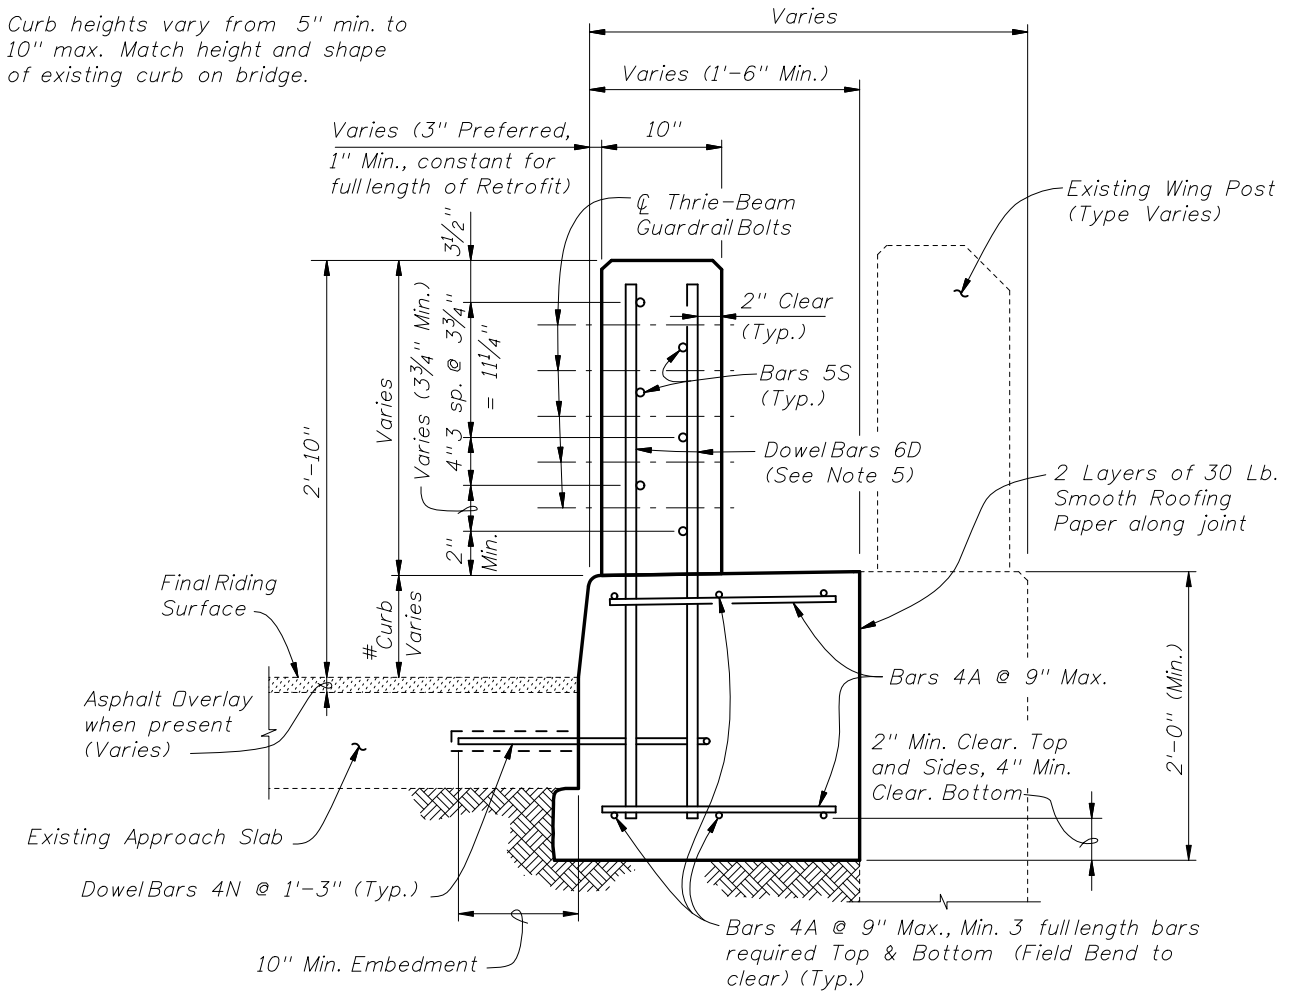 Curb heights vary from 5" min. to
10" max. Match height and shape
of existing curb on bridge.
Varies
Varies (1'-6" Min.)
Varies (3" Preferred,
1" Min., constant for
full length of Retrofit)
10"
℄ Thrie-Beam
Guardrail Bolts
Existing Wing Post
(Type Varies)
3½"
2'-10"
Varies
Varies (3¾" Min.)
3 sp. @ 3¾"
= 11¼"
4"
2"
Min.
2" Clear
(Typ.)
Bars 5S
(Typ.)
Dowel Bars 6D
(See Note 5)
2 Layers of 30 Lb.
Smooth Roofing
Paper along joint
Final Riding
Surface
# Curb
Varies
Asphalt Overlay
when present
(Varies)
Bars 4A @ 9" Max.
2'-0" (Min.)
2" Min. Clear. Top
and Sides, 4" Min.
Clear. Bottom
Existing Approach Slab
Dowel Bars 4N @ 1'-3" (Typ.)
10" Min. Embedment
Bars 4A @ 9" Max., Min. 3 full length bars
required Top & Bottom (Field Bend to
clear) (Typ.)